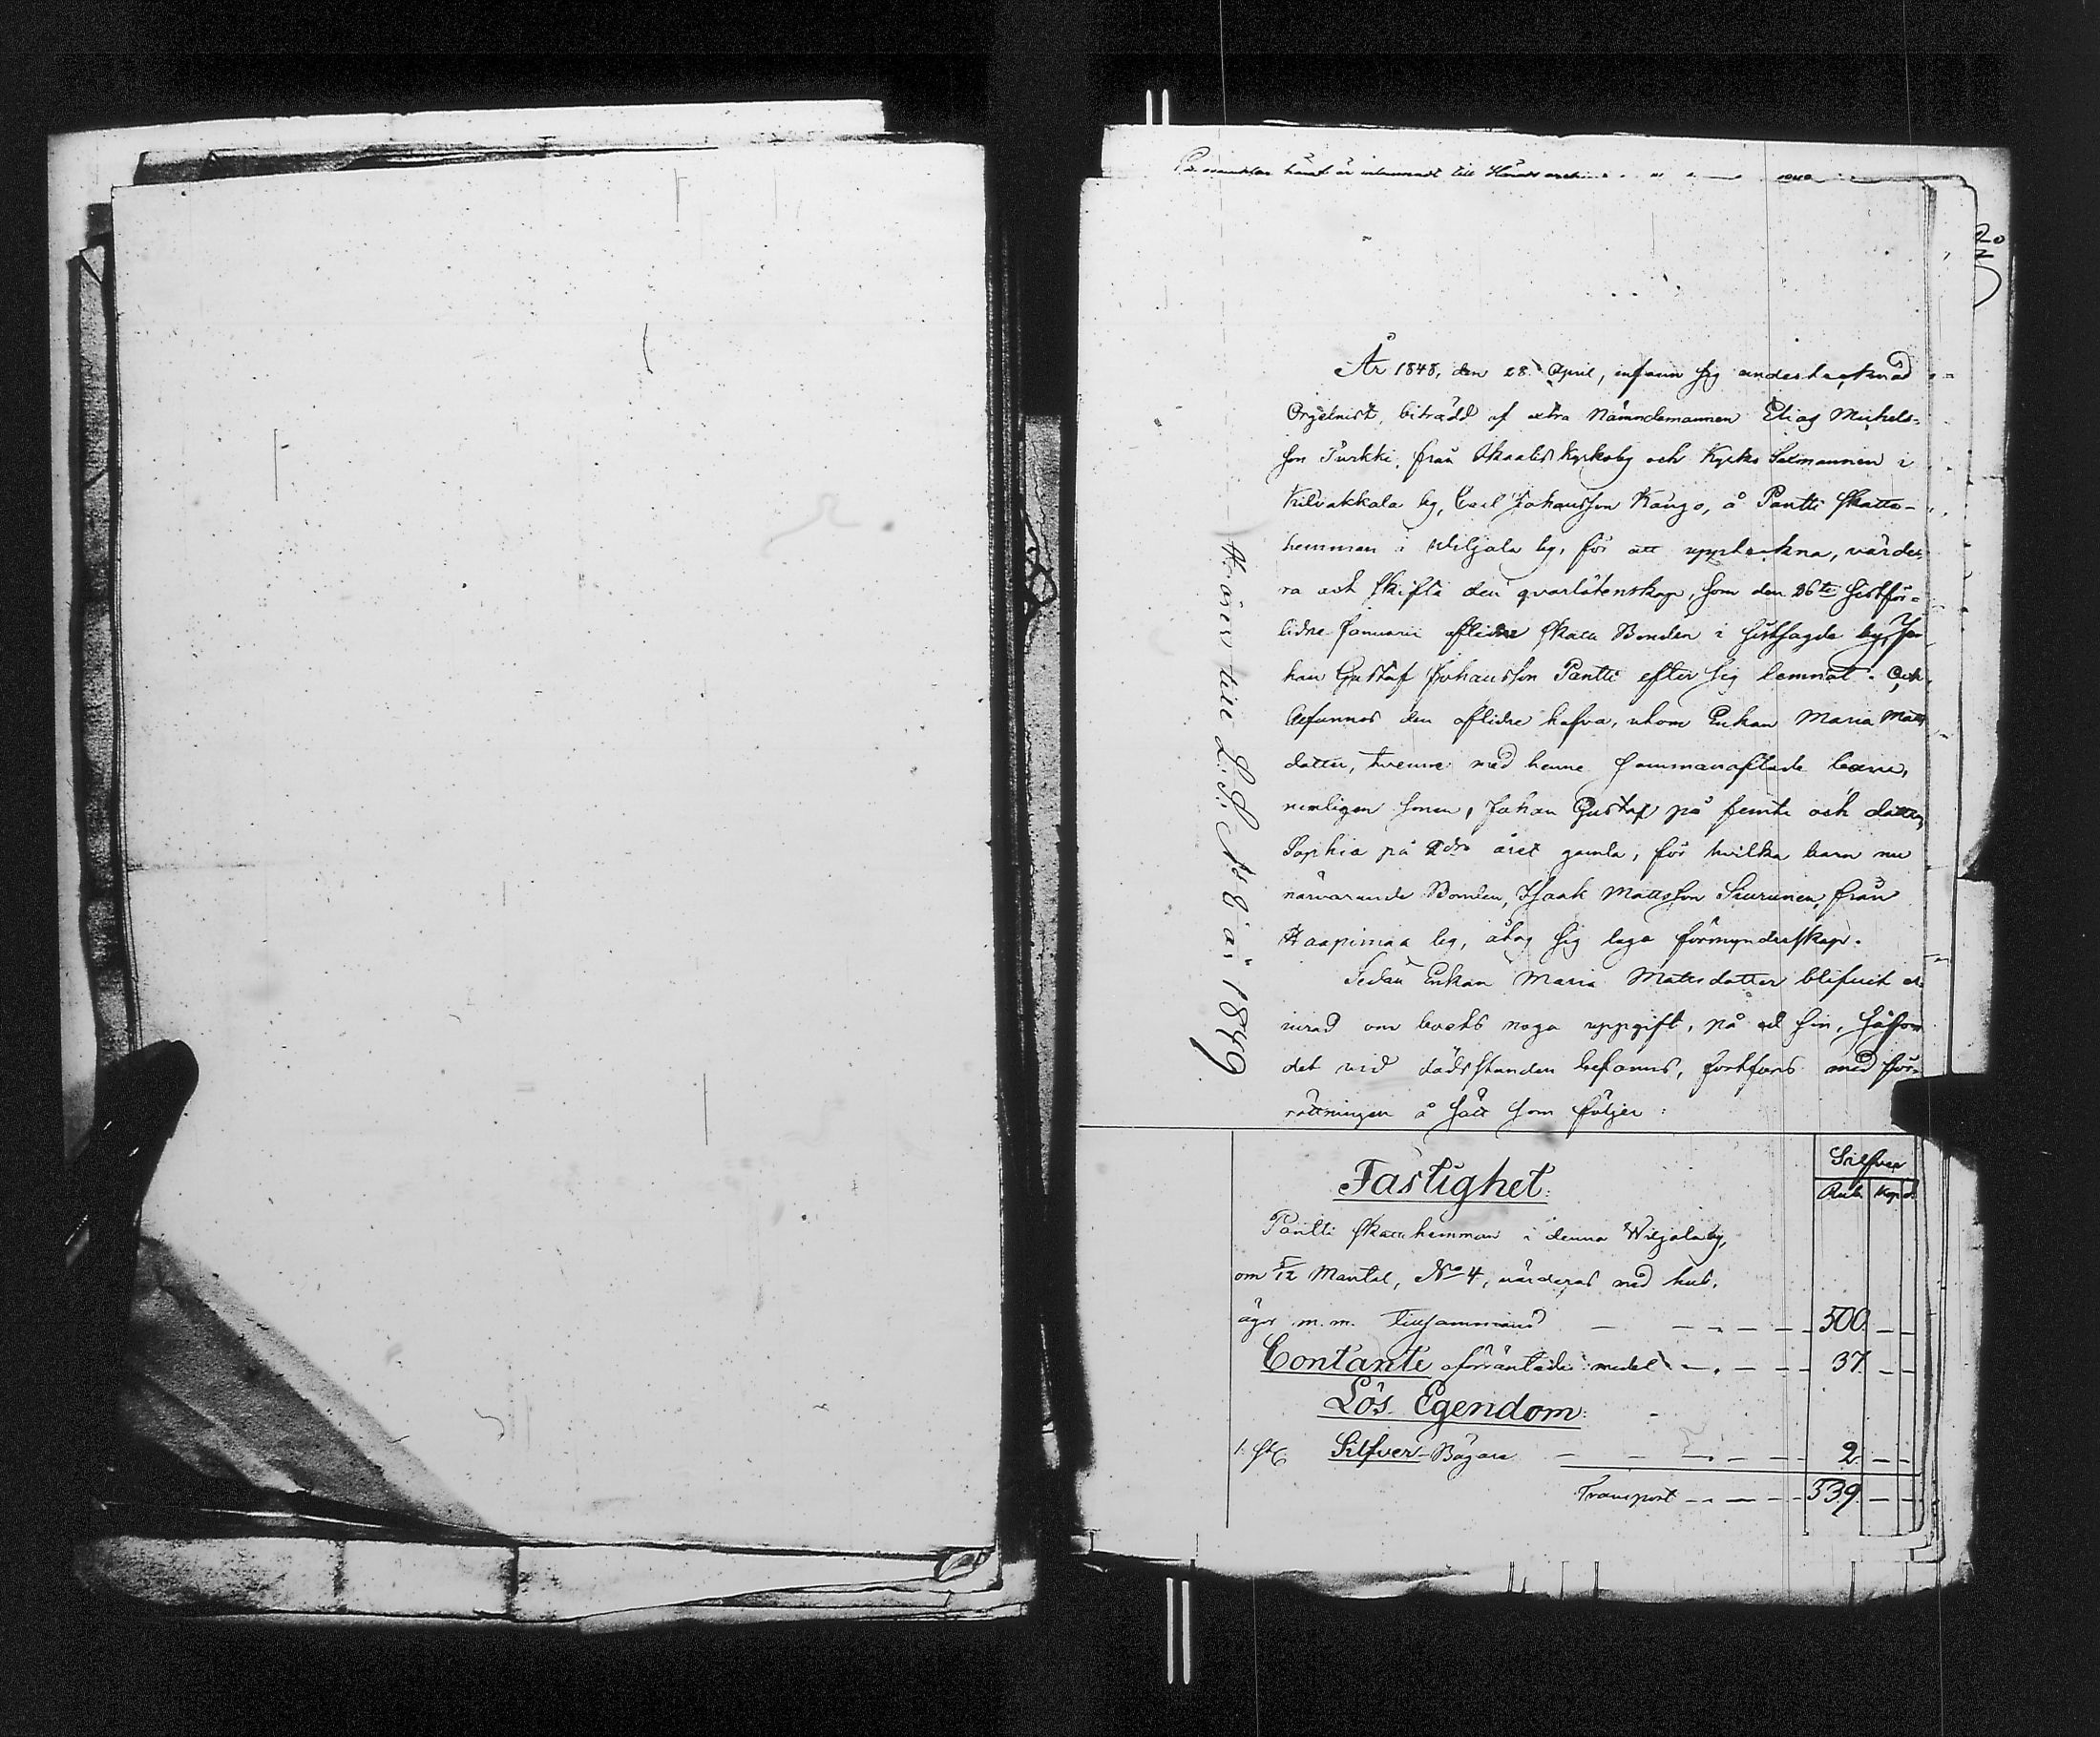 År 1848, den 28 April, infann sig undertecknad
Orgelnist, biträdd af extra Nämndemannen Elias Michels-
son Turkki, från Akaalis Kyrkoby och Kyrko Sexmannen i
Kilvakkala by, Carl Johansson Kango, å Pantti Skatte-
hemman i Wiljala by, för att uppteckna, värde-
ra och skifta den qvarlåtenskap, som den 26te sistför-
lidne Januarii aflidne Skatte Bonden i sistsagde by, Jo-
han Gustaf Johansson Pantti efter sig lemnat. Och
befunnos den aflidne hafva, utom Enkan Maria Matts
dotter, tvenne med henne sammanaflade barn,
nemligen sonen, Johan Gustaf på femte och dottren
Sophia på 2dra året gamla, för hvilka barn nu
närvarande Bonden, Isaak Mattsson Siurunen, från
Haapimaa by, åtog sig laga förmynderskap.
Sedan Enkan Maria Mattsdotter blifvit er-
inrad om boets noga uppgift, på ed sin, såsom
det vid dödsstunden befanns, fortfors med för-
rättningen å sätt som följer:
Hörer till L: S: N 8 år 1849
Silfver
Rub. Kop.
Fastighet:
Pantti Skattehemman i denna Wiljala by,
om 5/12 Mantal, No 4, värderas med hus,
ägor m.m. tillsammans — 500 — —
Contante oförräntade medel — 37 — —
Lös Egendom:
1 st. Silfver-Bägare — 2 — —
Transport — 539 — —